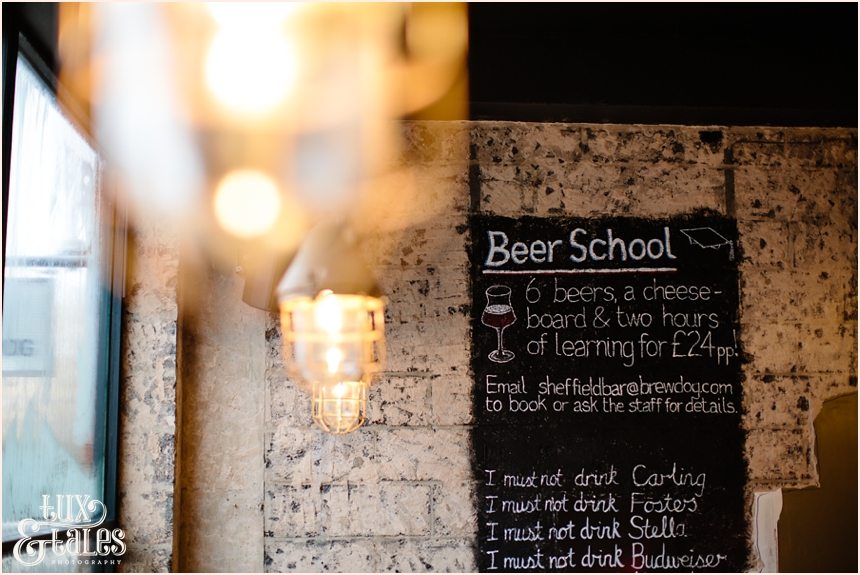 Beer School
6 beers, a cheese-
board & two hours
of learning for £24pp!
Email sheffieldbar@brewdog.com
to book or ask the staff for details.
I must not drink Carling
I must not drink Fosters
I must not drink Stella
I must not drink Budweiser
tux
& tales
PHOTOGRAPHY